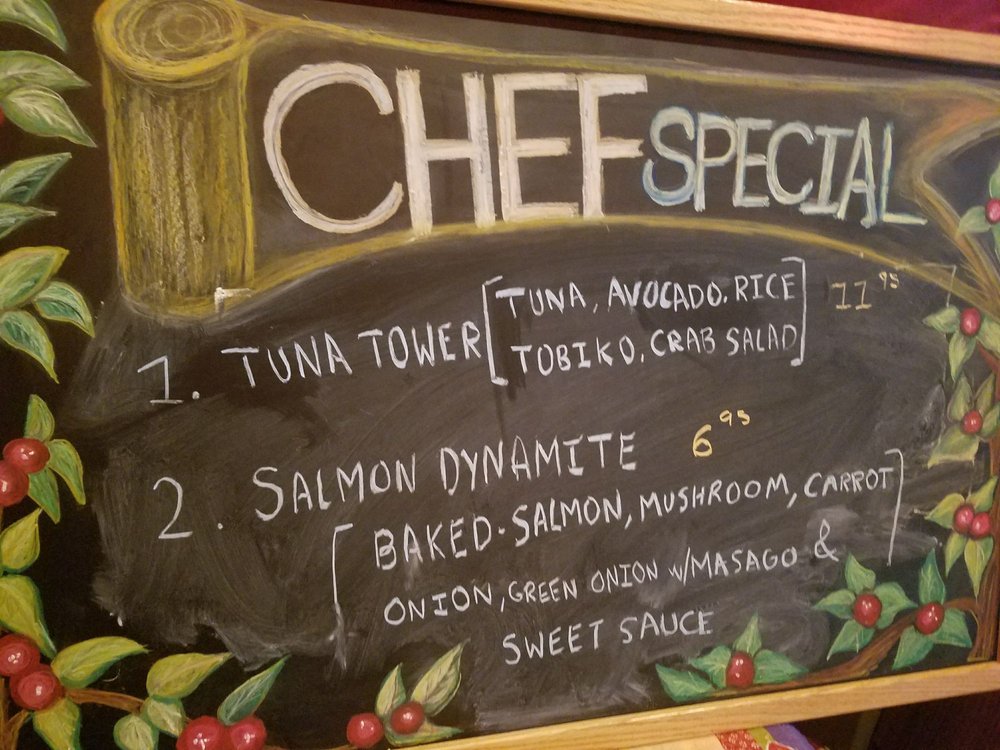 CHEF SPECIAL
1. TUNA TOWER [TUNA, AVOCADO. RICE 11 95
TOBIKO, CRAB SALAD]
2. SALMON DYNAMITE 6 95
[BAKED-SALMON, MUSHROOM, CARROT
ONION, GREEN ONION W/MASAGO &
SWEET SAUCE]